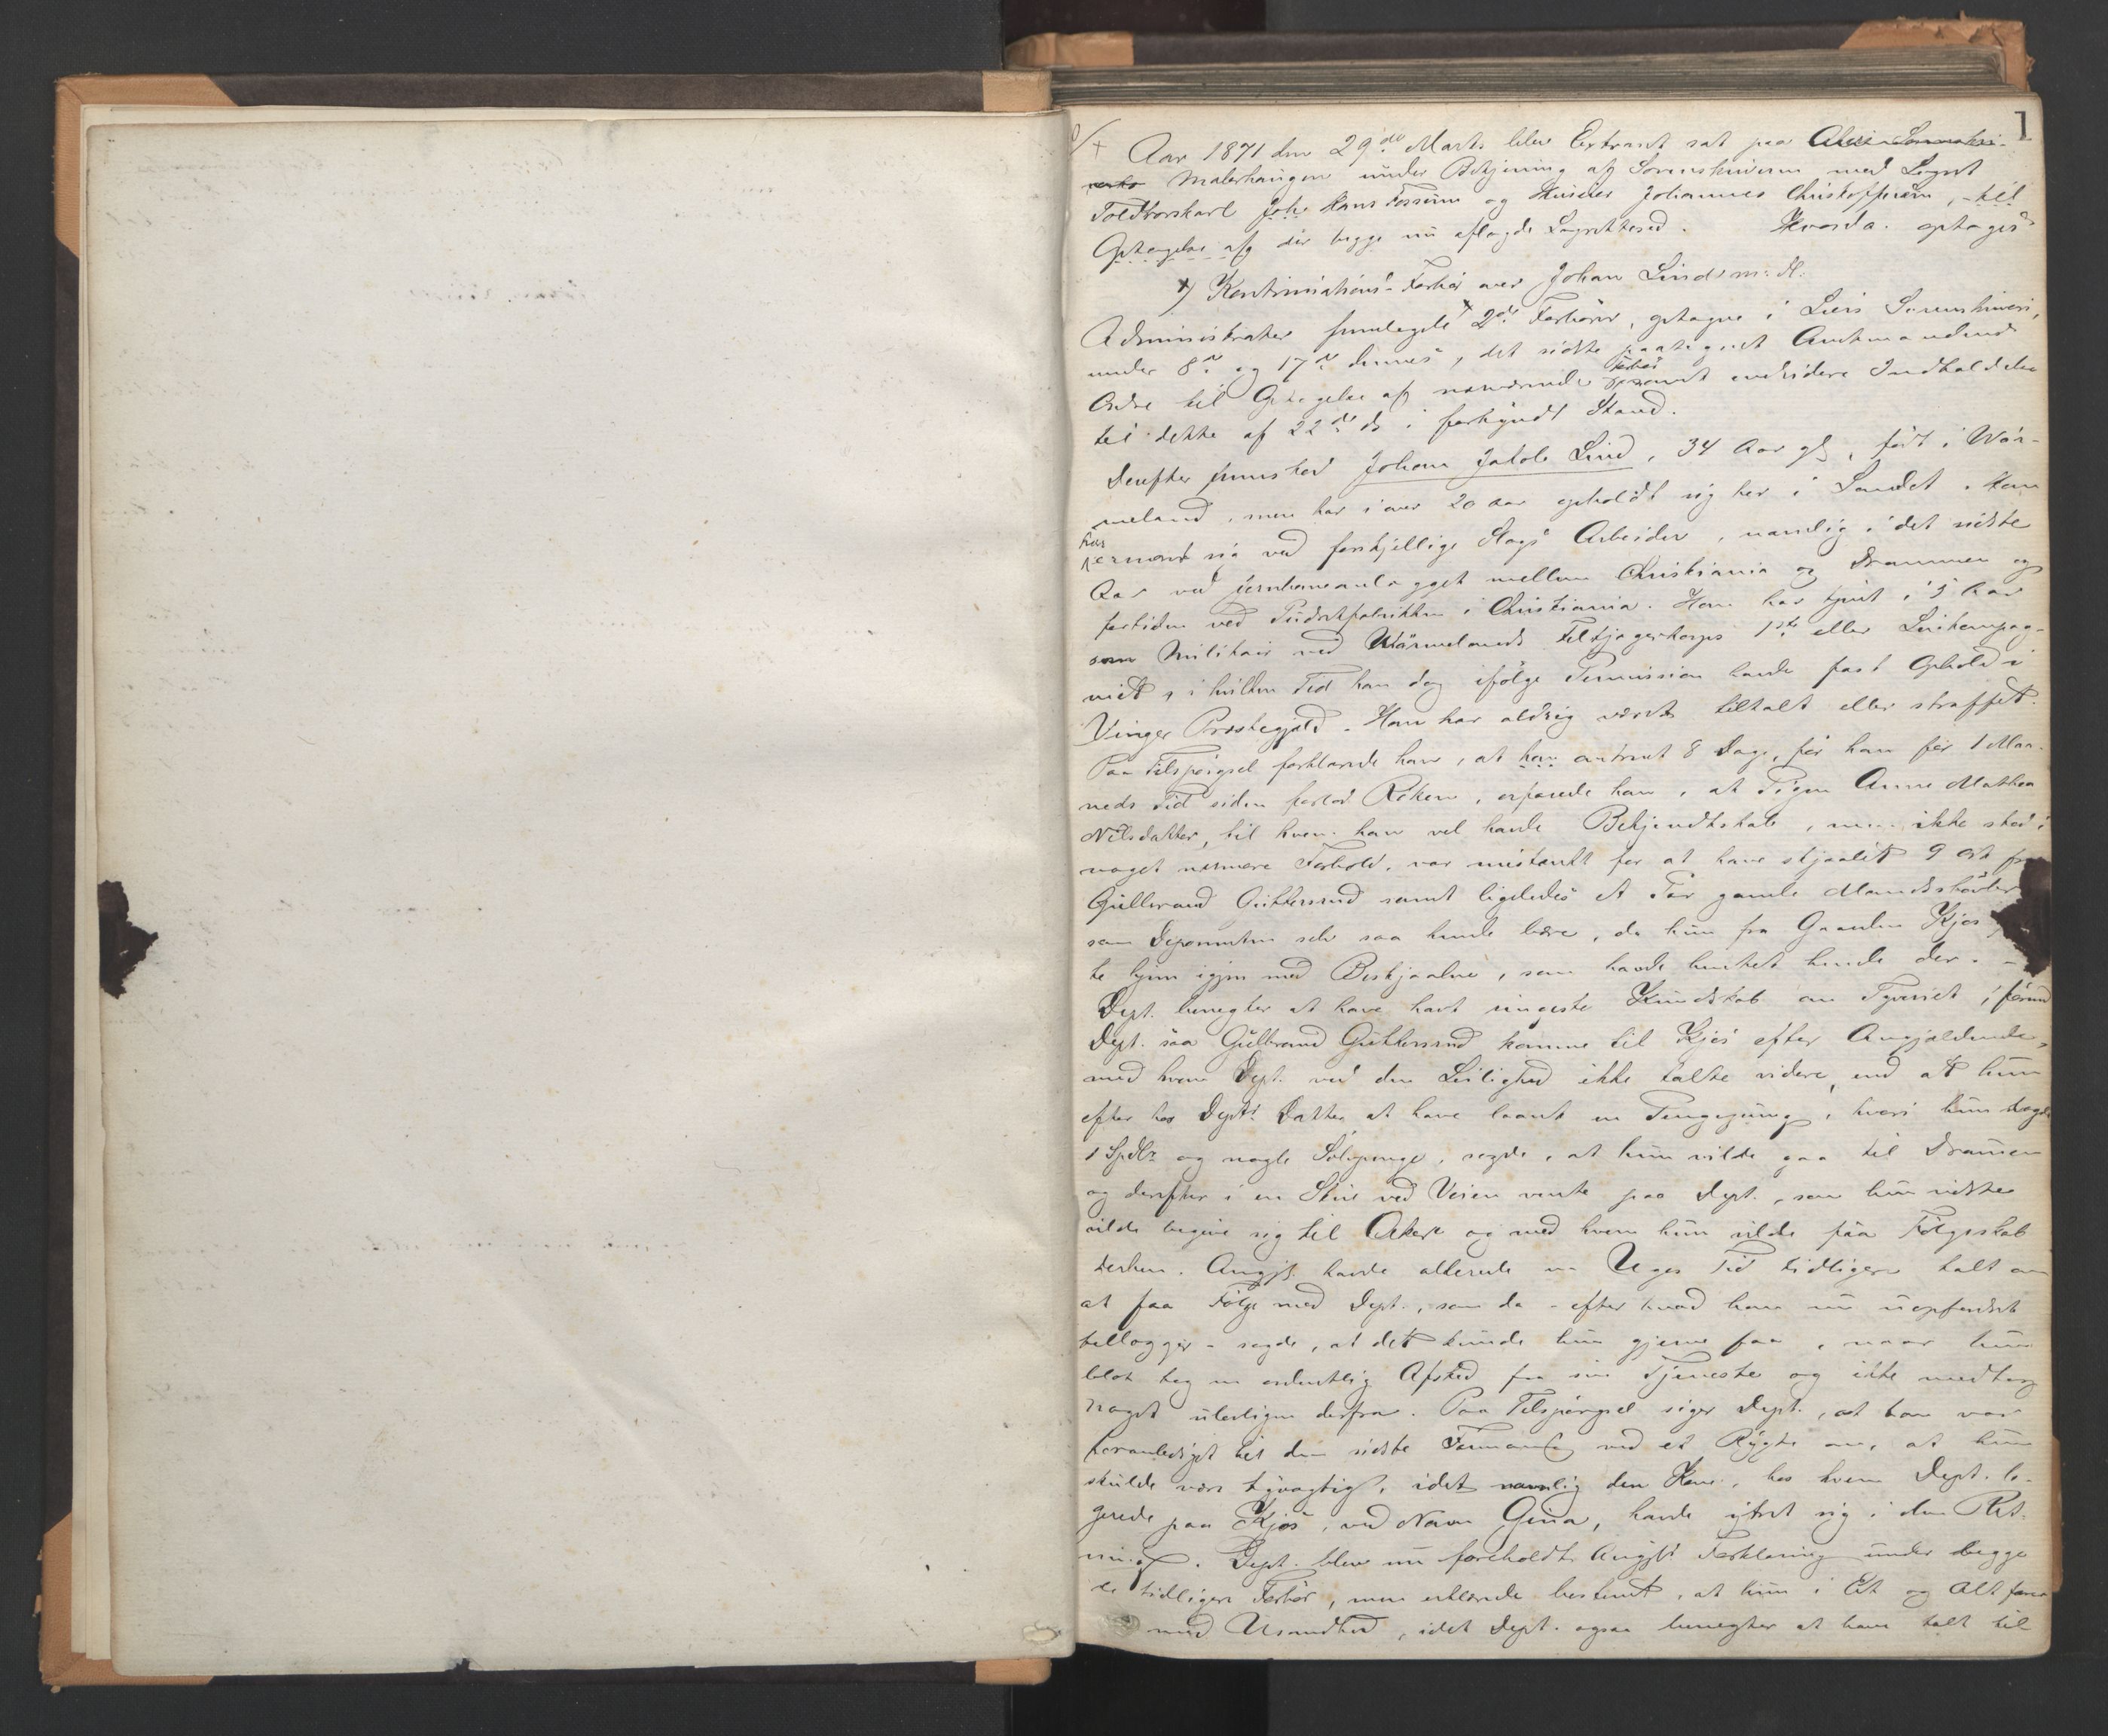 1
Aar 1871 den 29de Marts blev Extraret sat paa Akers Sorenskri-
Malerhaugen under Betjening af Sorenskriveren med Lagret
Joh. Hans Fossum og Huseier Johannes Christophersen, til
Optagelse af der begge nu aflagde Lagrettesed. Hvorda optoges
x) Kontinuations-Forhør over Johan Lind m: Fl.
Administrator fremlagde 2de Forhører, optagne i Liers Sorenskriveri,
under 8de og 17de dennes, det sidste paategnet Amtmandens
Ordre til Optagelse af nærværende Forhør samt endvidere Indkaldelse
til dette af 22de ds i forkyndt Stand.
Derefter fremstod Johan Jakob Lind, 34 Aar gl, født i Wär-
meland, men har i over 20 Aar opholdt sig her i Landet. Han
har ernæret sig ved forskjellige Slags Arbeider, navnlig i det sidste
Aar ved Jernbaneanlægget mellem Christiania og Drammen og
fortiden ved Pudretfabrikken i Christiania. Han har tjent i 5 Aar
som Militair ved Wärmelands Feltjægerkorps 1ste eller Leifkompag-
niet, i hvilken Tid han dog ifølge Permission havde fast Ophold i
Vinger Præstegjeld. Han har aldrig været tiltalt eller straffet.
Paa Tilspørgsel forklarede han, at han omtrent 8 Dage, før han for 1 Maa-
neds Tid siden forlod Røken, erfarede han, at Pigen Anne Mathea
Nilsdatter, til hvem han vel havde Bekjendtskab, men ikke stod i
noget nærmere Forhold, var mistænkt for at have stjaalet 9 Ort fra
Gulbrand Guttersrud samt ligeledes et Par gamle Mandsstøvler
som Deponenten selv saa hende bære, da hun fra Gaarden Kjos
te hjem igjen med Bestjaalne, som havde hentet hende der. -
Dept. benegter at have havt ringeste Kundskab om Tyveriet, førend
Dept. saa Gulbrand Guttersrud komme til Kjos efter Angjældende,
med hvem Dept. ved den Leilighed ikke talte videre, end at hun
efter hos Depts Datter at have laant en Pengepung, hvori hun lagde
1 Spdlr og nogle Sølvpenge, sagde, at hun vilde gaa til Dramen
og derefter i en Skov ved Veien vente paa Dept., som hun vidste
vilde begive sig til Aker og med hvem hun vilde faa Følgeskab
derhen. Angjl. havde allerede en Uges Tid tidligere talt om
at faa Følge med Dept., som da - efter hvad han nu uopfordret
tillægger - sagde, at det kunde hun gjerne faa, naar hun
blot tog en ordentlig Afsked fra sin Tjeneste og ikke medtog
noget ulovligen derfra. Paa Tilspørgsel siger Dept., at han var
foranlediget til den sidste Formaning ved et Rygte om, at hun
skulde være tyvagtig, idet navnlig den Kone, hos hvem Dept. lo-
gerede paa Kjos, ved Navn Gina, havde ytret sig i den Ret-
ning. Dept. blev nu foreholdt Angjls Forklaring under begge
de tidligere Forhør, men erklærede bestemt, at hun i Et og Alt farer
med Usandhed, idet Dept. ogsaa benegter at have talt til